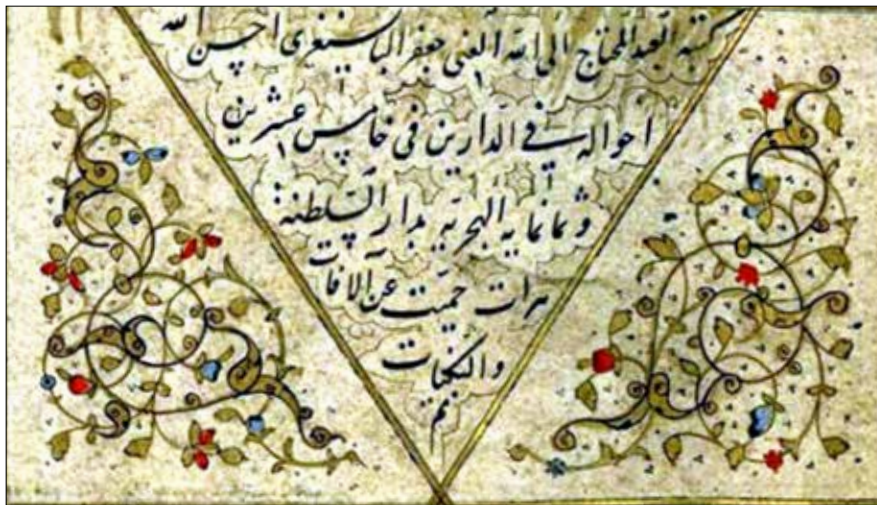 كتبه العبد المحتاج الى الله الغنى جعفر البايسنغرى احسن الله
احواله في الدارين فى خامس عشرين
وثمانمايه الهجريه بدار السلطنه
هرات حميت عن الآفات
والنكبات
تم